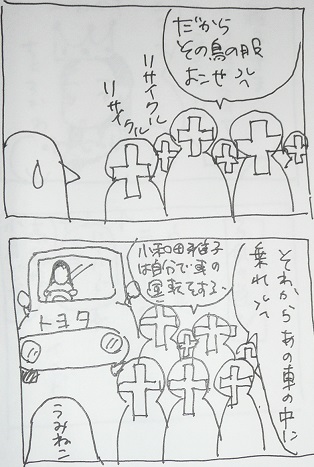 だから
その鳥の服
よこせ
リサイクル
リサイクル
それから あの車の中に
乗れ
小和田雅子
は自分で車の
運転をする、
トヨタ
うみねこ